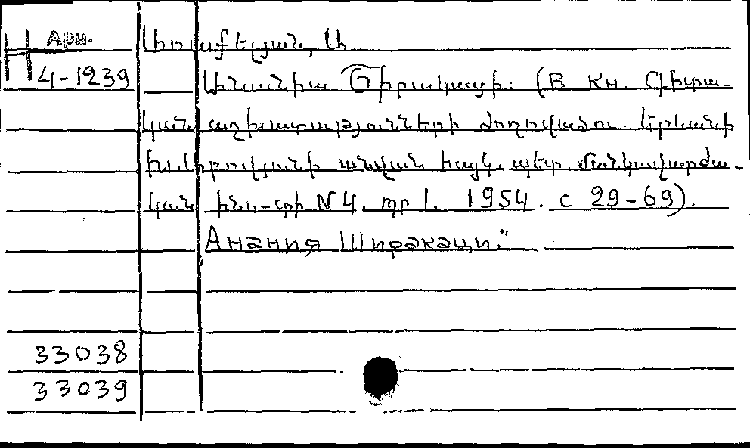 Арм.
H 4-1239
Առաքելյան, Ա
Անանիա Շիրակացի. (В кн. Գիտա-
կան աշխատությունների ժողովածու Երևանի
Խ. Աբովյանի անվան հայկ. պետ. մանկավարժա-
կան ինս-տի N4. пр 1. 1954. с 29-69).
Анания Ширакаци."
33038
33039